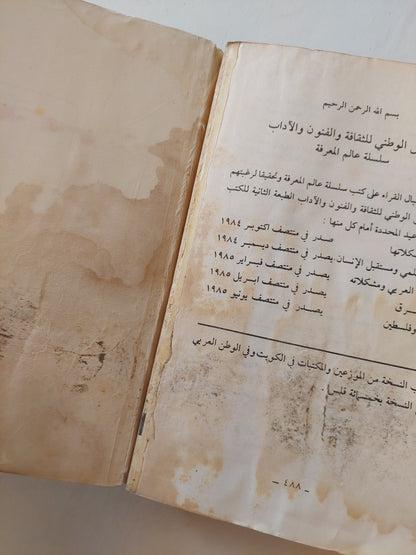 بسم الله الرحمن الرحيم
الوطني للثقافة والفنون والآداب
سلسلة عالم المعرفة
القراء على كتب سلسلة عالم المعرفة وتحقيقا لرغبتهم
الوطني للثقافة والفنون والآداب الطبعة الثانية للكتب
المحددة أمام كل منها :
صدر في منتصف اكتوبر ١٩٨٤
ومستقبل الإنسان يصدر في منتصف ديسمبر ١٩٨٤
العربي ومشكلاته يصدر في منتصف فبراير ١٩٨٥
يصدر في منتصف ابريل ١٩٨٥
وفلسطين يصدر في منتصف يونيو ١٩٨٥
النسخة من الموزعين والمكتبات في الكويت وفي الوطن العربي
النسخة بخمسمائة فلس .
- ٤٨٨ -